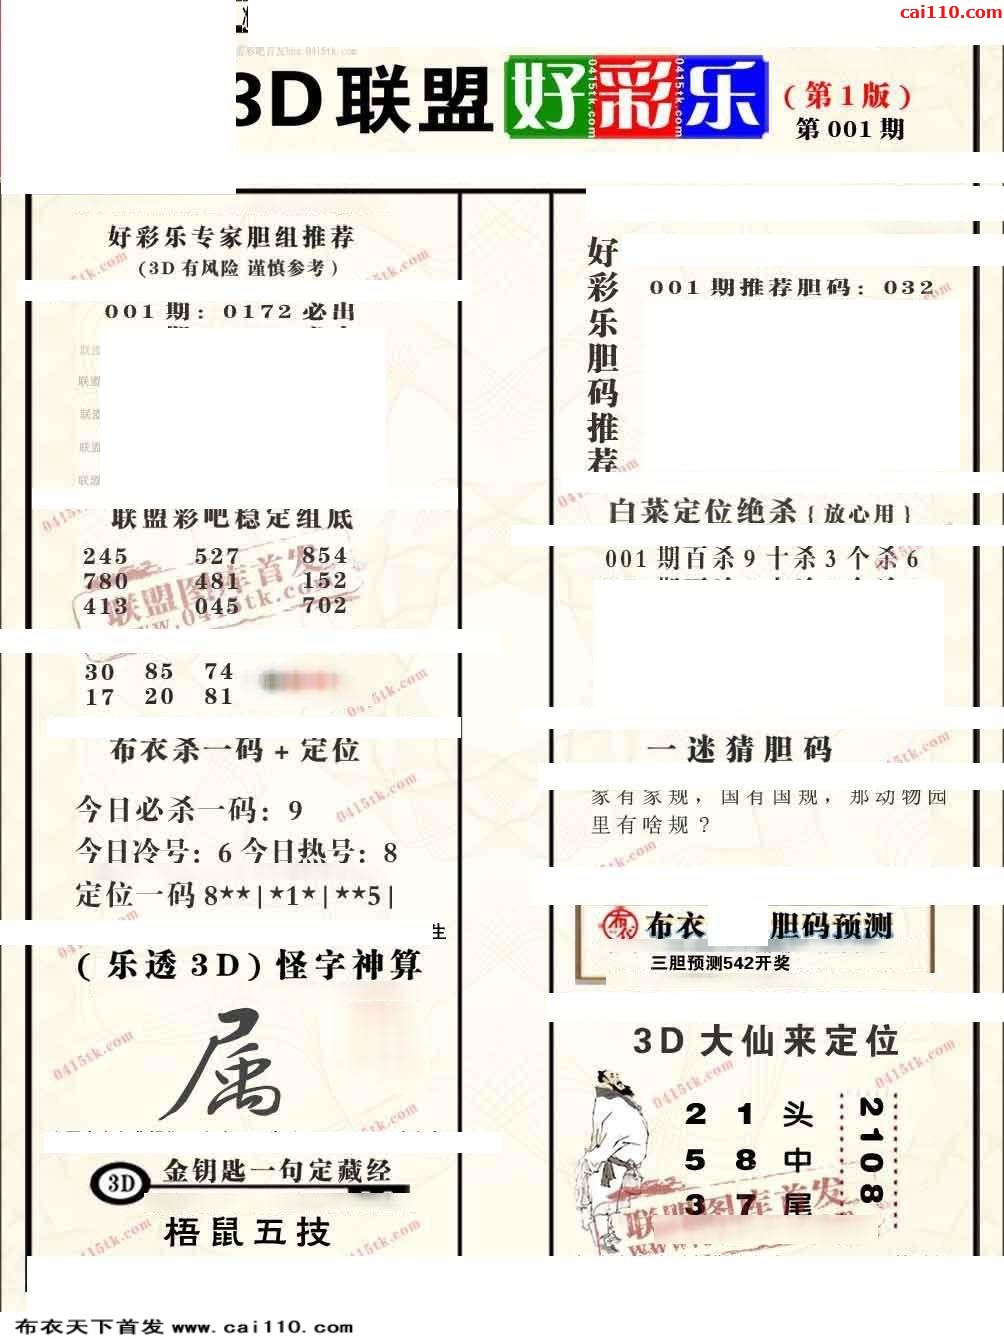 cai110.com
3D联盟好彩乐
(第1版)
第001期
好彩乐专家胆组推荐
(3D有风险 谨慎参考)
001期: 0172必出
联盟彩吧稳定组底
245 527 854
780 481 152
413 045 702
30 85 74
17 20 81
布衣杀一码+定位
今日必杀一码: 9
今日冷号: 6 今日热号: 8
定位一码8**|*1*|**5|
生
(乐透3D)怪字神算
属
3D 金钥匙一句定藏经
梧鼠五技
好彩乐胆码推荐
001期推荐胆码: 032
白菜定位绝杀{放心用}
001期百杀9十杀3个杀6
一迷猜胆码
家有家规，国有国规，那动物园
里有啥规？
布衣 胆码预测
三胆预测542开奖
3D大仙来定位
2 1 头
5 8 中
3 7 尾
2108
联盟图库首发
www.0415tk.com
布衣天下首发 www.cai110.com